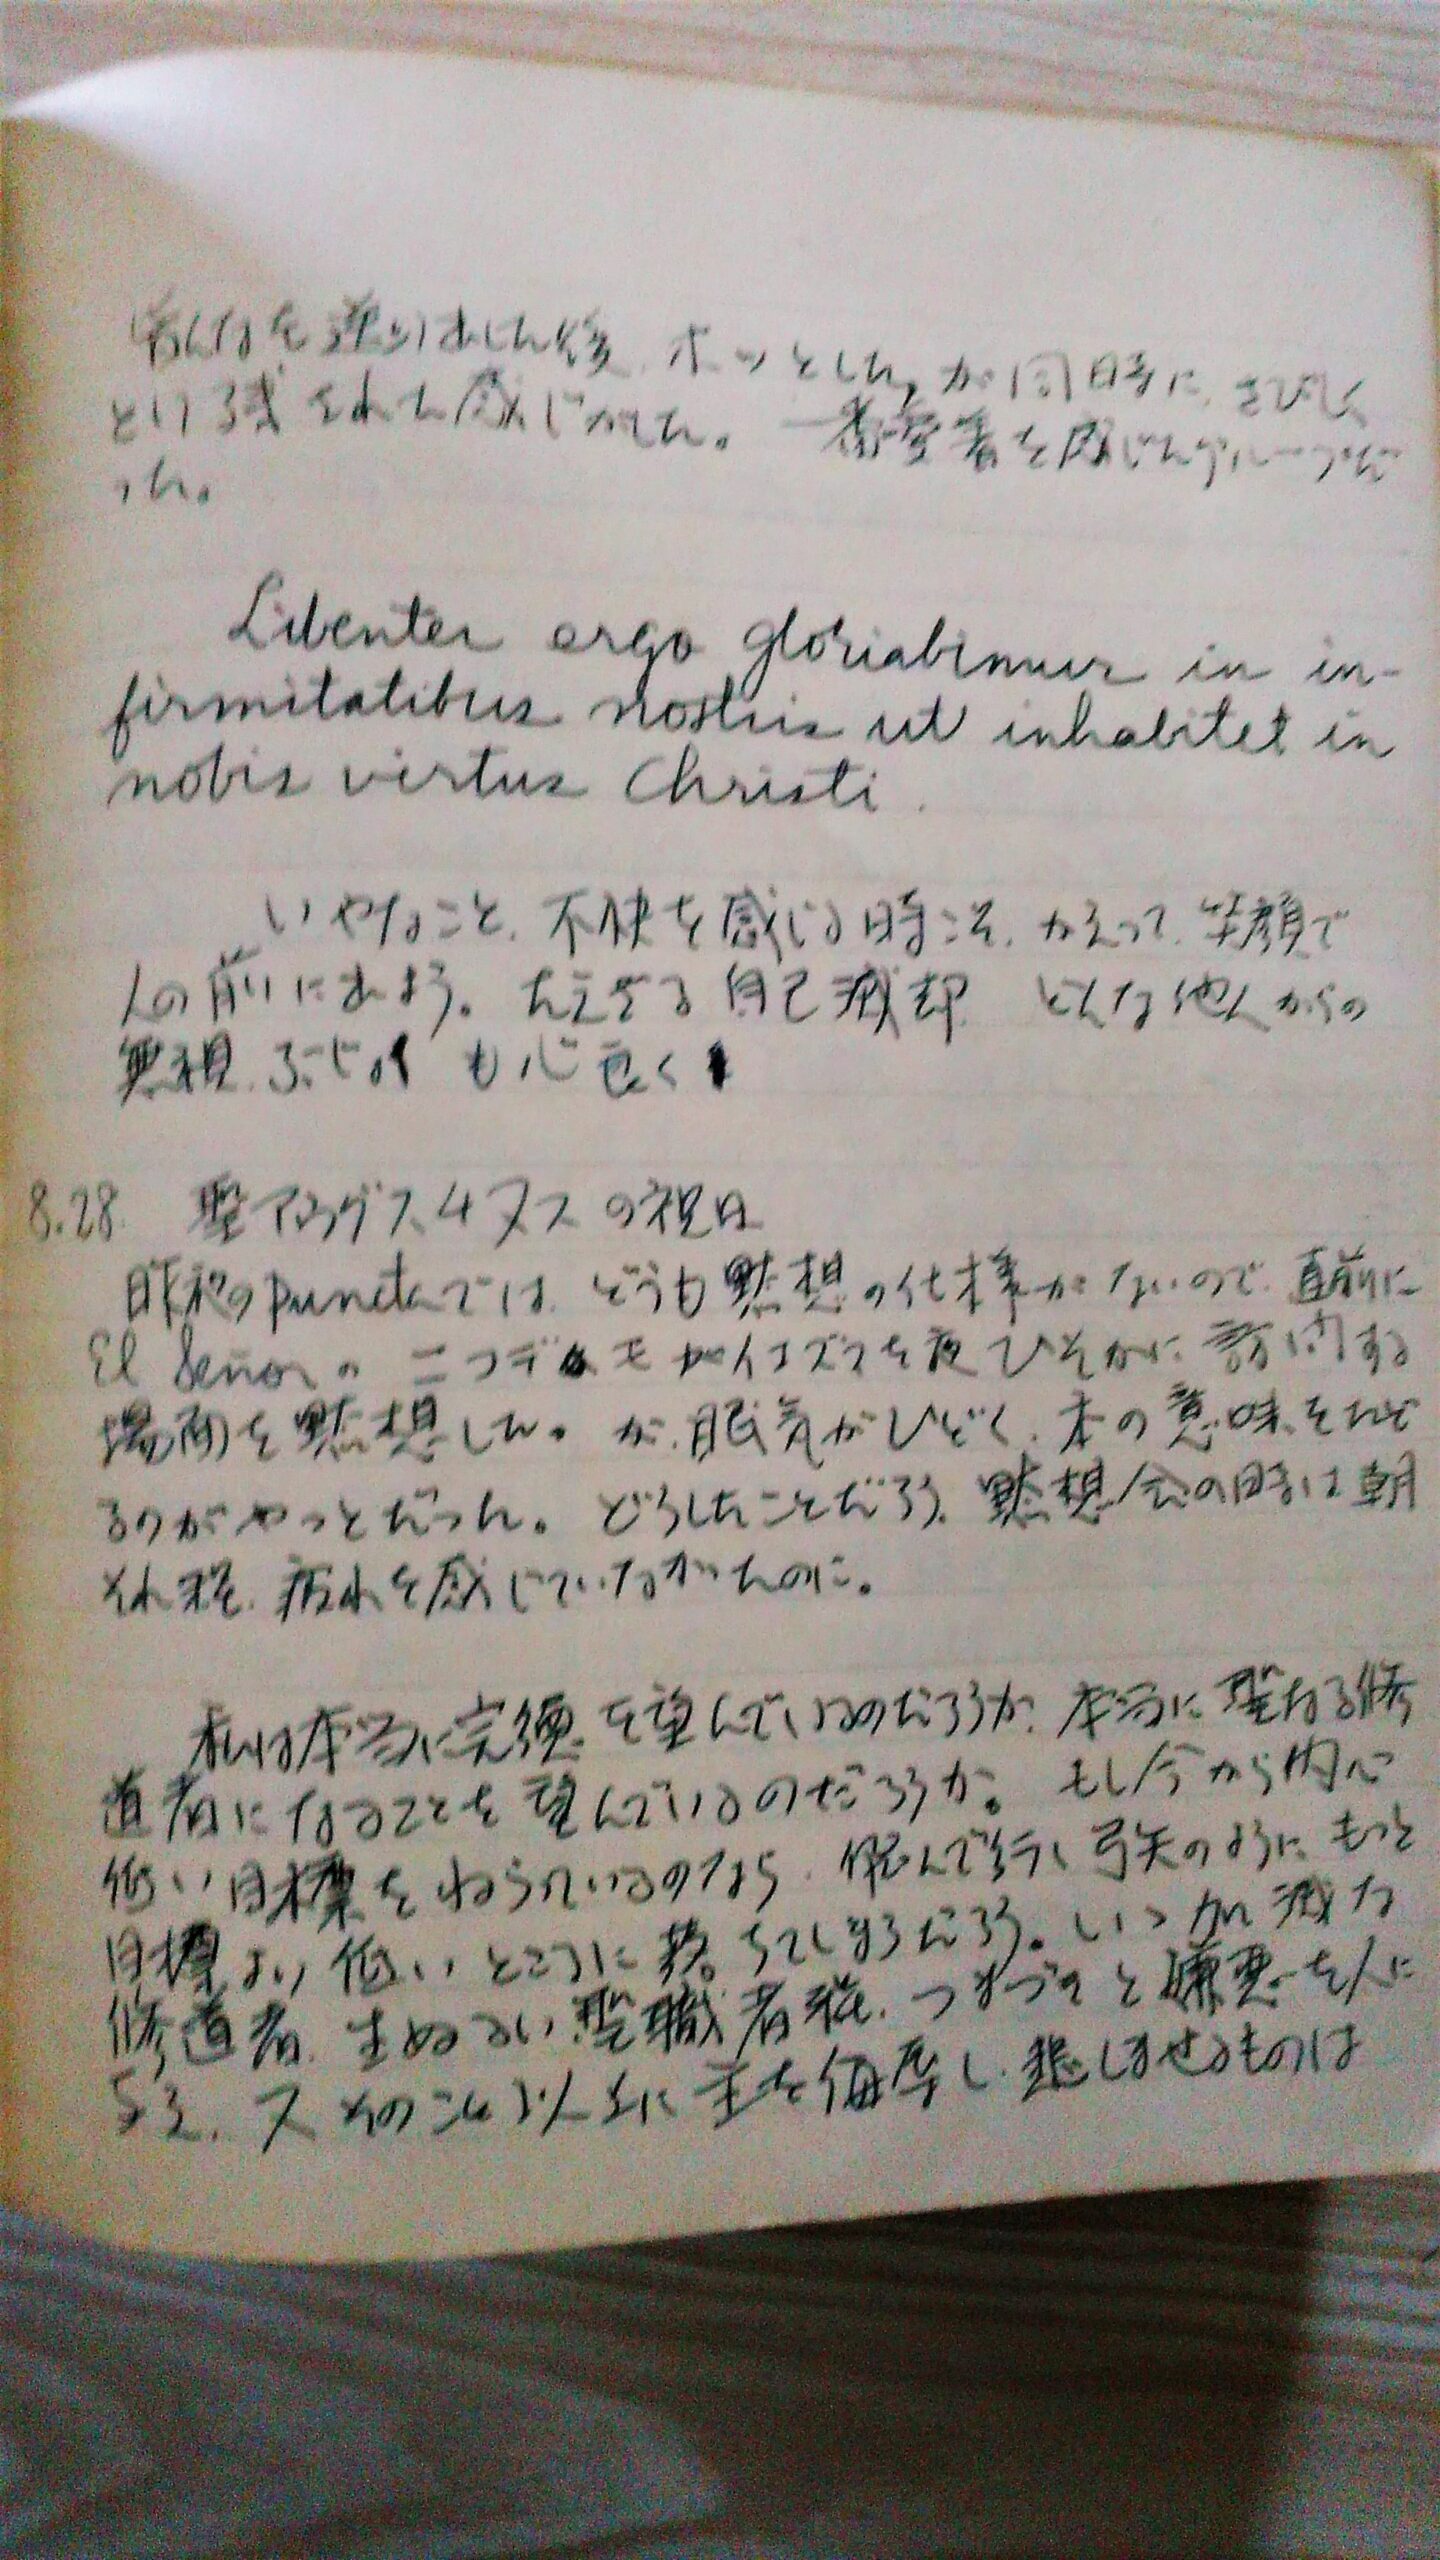 みんなを送り出した後、ホッとした、が同時に、さびしく
とり残された感じがした。一番愛着を感じたグループだ
った。
Libenter ergo gloriabimur in in-
firmitatibus nostris ut inhabitet in
nobis virtus Christi.
いやなこと、不快を感じる時こそ、かえって、笑顔で
人の前に出よう。たえざる自己滅却 どんな他人からの
無視、ぶじょくも心良く
8.28 聖アウグスチヌスの祝日
昨夜のpunctaでは、どうも黙想の仕様がないので、直前に
El Señorの ニコデモがイエズスを夜ひそかに訪問する
場面を黙想した。が、眠気がひどく、本の意味をたど
るのがやっとだった。どうしたことだろう、黙想会の時は朝
それ程、疲れを感じていなかったのに。
私は本当に完徳を望んでいるのだろうか、本当に聖なる修
道者になることを望んでいるのだろうか。もし今から内心
低い目標をねらっているのなら、飛んで行く弓矢のように、もっと
目標より低いところに落ちてしまうだろう。いい加減な
修道者、生ぬるい聖職者程、つまづきと嫌悪を人に
与え、又そのこと以上に主を侮辱し、悲しませるものは